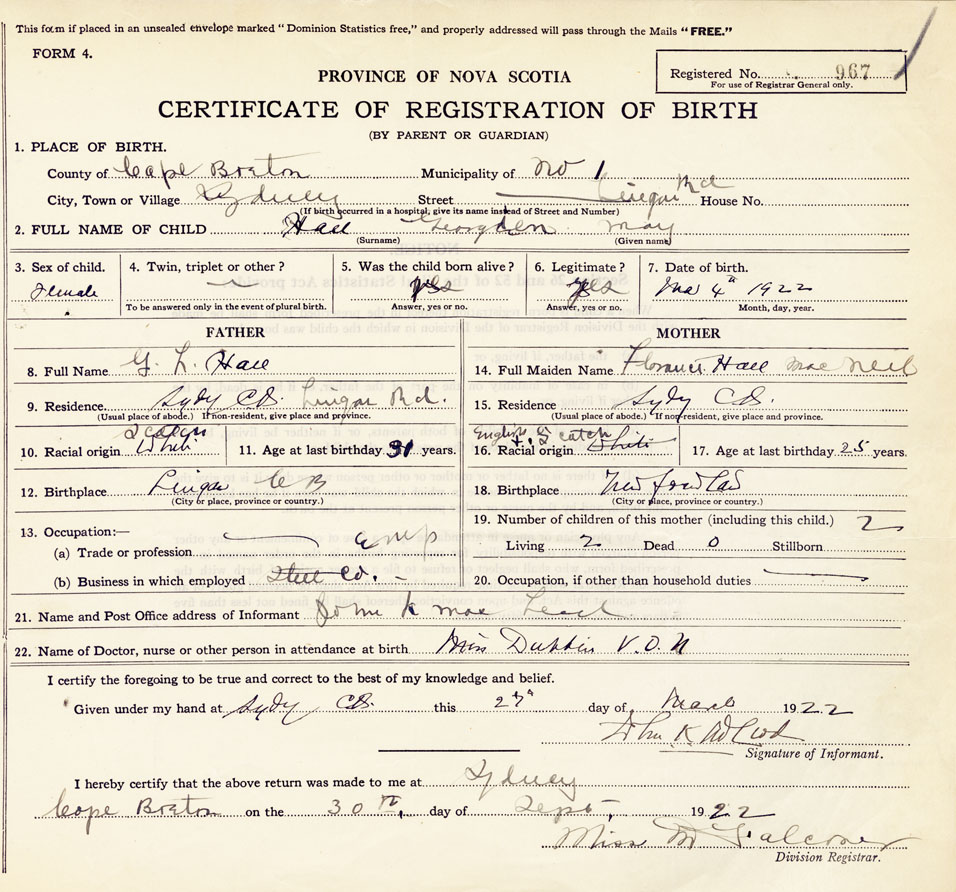 This form if placed in an unsealed envelope marked "Dominion Statistics free," and properly addressed will pass through the Mails "FREE."
FORM 4.
Registered No. 967
For use of Registrar General only.
PROVINCE OF NOVA SCOTIA
CERTIFICATE OF REGISTRATION OF BIRTH
(BY PARENT OR GUARDIAN)
1. PLACE OF BIRTH.
County of Cape Breton Municipality of No 1
City, Town or Village Sydney Street Lingan Rd House No.
(If birth occurred in a hospital, give its name instead of Street and Number)
2. FULL NAME OF CHILD Hall May
(Surname) (Given name)
3. Sex of child. 4. Twin, triplet or other? 5. Was the child born alive? 6. Legitimate? 7. Date of birth.
Female yes yes 4th 1922
To be answered only in the event of plural birth. Answer, yes or no. Answer, yes or no. Month, day, year.
FATHER MOTHER
8. Full Name G. L. Hall 14. Full Maiden Name Florance Hall Mac Neil
9. Residence Sydy C.B. Lingan Rd. 15. Residence Sydy C.B.
(Usual place of abode.) If non-resident, give place and province. (Usual place of abode.) If non-resident, give place and province.
Scotch English + Scotch
10. Racial origin White 11. Age at last birthday 31 years. 16. Racial origin White 17. Age at last birthday 25 years.
12. Birthplace Lingan C B 18. Birthplace
(City or place, province or country.) (City or place, province or country.)
13. Occupation:— 19. Number of children of this mother (including this child.) 2
(a) Trade or profession emp Living 2 Dead 0 Stillborn
(b) Business in which employed Steel Co. 20. Occupation, if other than household duties
21. Name and Post Office address of Informant John K Mac Leod
22. Name of Doctor, nurse or other person in attendance at birth Miss V.O.N
I certify the foregoing to be true and correct to the best of my knowledge and belief.
Given under my hand at Sydy C.B. this day of March 1922
John K McLeod
Signature of Informant.
I hereby certify that the above return was made to me at Sydney
Cape Breton on the 30th, day of Sept, 1922
Miss M Falconer
Division Registrar.